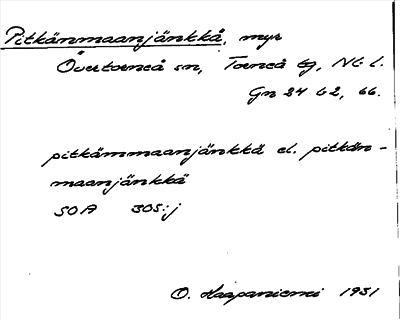 Pitkänmaanjänkkä, myr
Övertorneå sn, Torneå tg, Nb l.
Gn 24 G2, 66.
pitkämmaanjänkkä el. pitkän-
maanjänkkä
SOA 305:j
O. Haapaniemi 1931